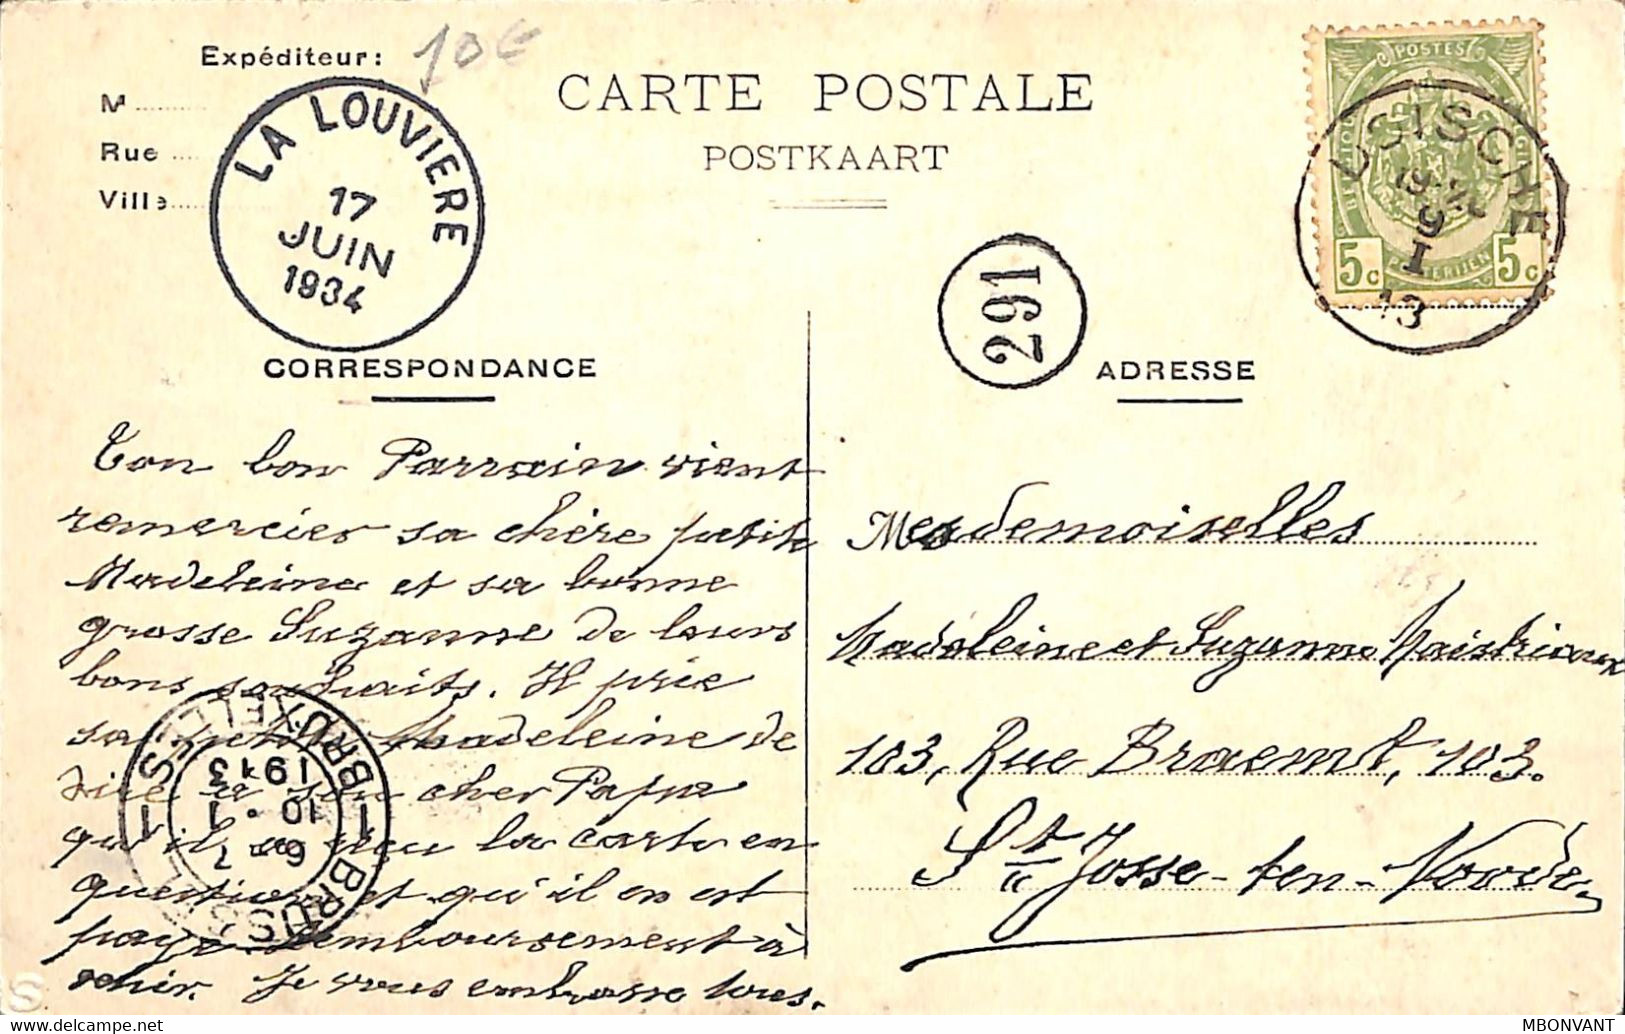 Expéditeur :
10€
M
Rue
Ville
LA LOUVIERE
17
JUIN
1934
CARTE POSTALE
POSTKAART
POSTES
BELGIQUE
5 c
POSTERIJEN
5 c
9
I
13
291
CORRESPONDANCE
ADRESSE
Ton bon Parrain vient
remercier sa chère petite
Madeleine et sa bonne
grosse Suzanne de leurs
bons souhaits. Il prie
sa petite Madeleine de
dire à son cher Papa
qu'il a reçu la carte en
question et qu'il en est
payé. Remboursement à
venir. Je vous embrasse tous.
Mesdemoiselles
Madeleine et Suzanne Maistriaux
103, Rue Braemt, 103.
St Josse-ten-Noode
1 BRUXELLES 1
1913
10 . 1
6 - 7
1 BRUSSEL
S
MBONVANT